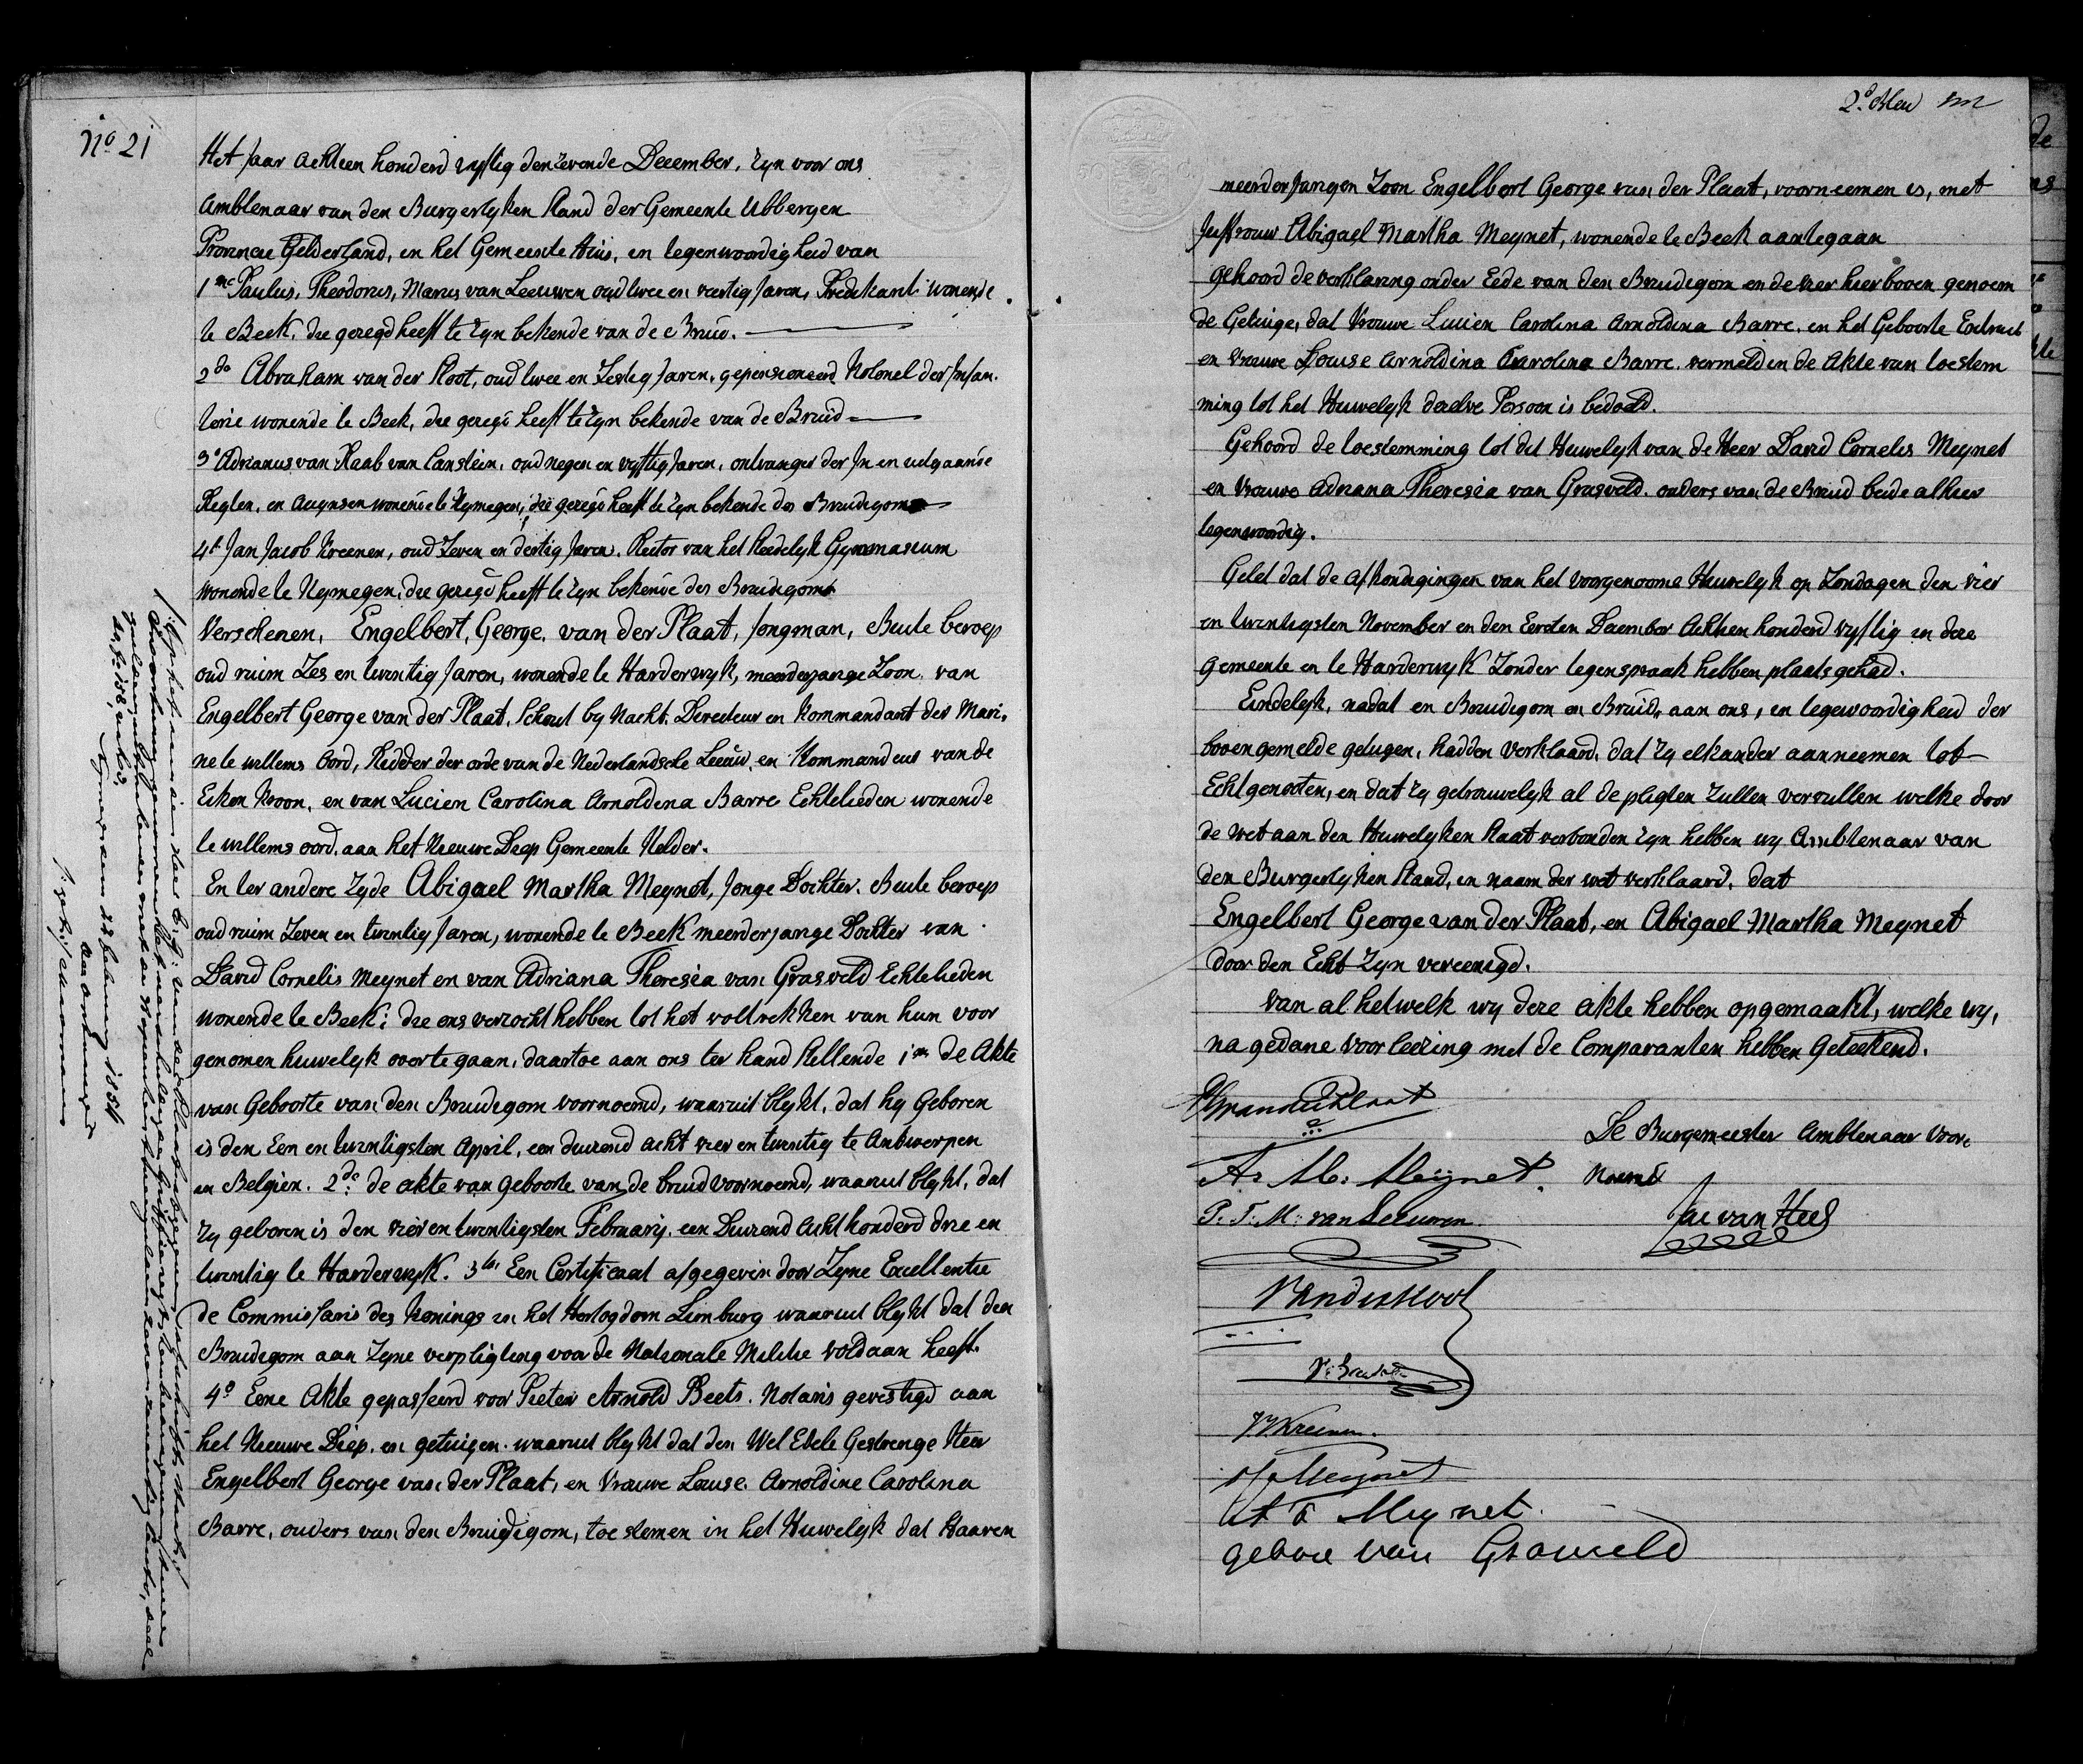 No 21
Het Jaar achtien honderd vyftig den zevende December, zyn voor ons
Ambtenaar van den Burgerlyken Stand der Gemeente Ubbergen
Provincie Gelderland, in het Gemeente Huis, en tegenwoordigheid van
1ne Paulus, Theodorus, Marus van Leeuwen oud twee en veertig Jaren, Predekant wonende
te Beek, die gezegd heeft te zyn bekende van de Bruid.
2de Abraham van der Sloot, oud twee en Zestig Jaren, gepensioneerd Kolonel der Infan.
terie wonende te Beek, die gezegd heeft te zyn bekende van de Bruid
3e Adrianus van Raab van Canstein, oud negen en vyftig Jaren, ontvanger der In en uitgaande
Regten, en Accynsen wonende te Nymegen, die gezegd heeft te zyn bekende des Bruidegoms
4t Jan Jacob Kreenen, oud Zeven en dertig Jaren. Rector van het Stedelyk Gymnasium
wonende te Nymegen, die gezegd heeft te zyn bekende des Bruidegoms
Verschenen, Engelbert, George, van der Plaat, Jongman, Buite beroep
oud ruim Zes en twintig Jaren, wonende te Harderwyk, meerderjange Zoon van
Engelbert George van der Plaat, Schout by Nacht, Derecteur en Kommandant der Mari,
ne te willems Oord, Redder der orde van de Nederlandsche Leeuw, en Kommandeur van de
Eiken Kroon, en van Lucien Carolina Arnoldina Barre Echtelieden wonende
te willems oord, aan het Nieuwe Diep Gemeente Helder.
En ter andere Zyde Abigael Martha Meynet, Jonge Dochter. Buite beroep
oud ruim Zeven en twintig Jaren, wonende te Beek meerderjange Dochter van
David Cornelis Meynet en van Adriana Theresia van Grasveld Echtelieden
wonende te Beek: die ons verzocht hebben tot het voltrekken van hun voor
genomen huwelyk over te gaan, daartoe aan ons ter hand stellende 1m de Akte
van Geboorte van den Bruidegom voornoemd, waaruit blykt, dat hy Geboren
is den Een en twintigsten April, een duizend acht vier en twintig te Antwerpen
in Belgien. 2de de akte van geboorte van de bruid voornoemd, waaruit blykt, dat
zy geboren is den vier en twentigsten February, een Duizend Acht honderd drie en
twentig te Harderwyk. 3te Een Certificaat afgegeven door Zyne Excellentie
de Commissaris des Konings in het Hertogdom Limburg waaruit blykt dat den
Bruidegom aan Zyne verpligting voor de Nationale Militie voldaan heeft.
4o Eene Akte gepasseerd voor Pieter Arnold Beets. Notaris gevestigd aan
het Nieuwe Diep, en getuigen. waaruit blykt dat den Wel Edele Gestrenge Heer
Engelbert George van der Plaat, en Vrouwe Louise Arnoldine Carolina
Barre, ouders van den Bruidigom, toestemen in het Huwelyk dat Haaren
Nymegen 22 February 1854
2e Blad
meerderjangen Zoon Engelbert George van der Plaat, voorneemen is, met
Juffrouw Abigael Martha Meynet, wonende te Beek aantegaan
Gehoord de verklaring onder Eede van den Bruidegom en de vier hierboven genoem
de Getuige, dat Vrouwe Lucien Carolina Arnoldina Barre, en het Geboorte Extract
en Vrouwe Louise Arnoldina Carolina Barre, vermeld in de Akte van toestem
ming tot het Huwelyk dezelve Persoon is bedoeld.
Gehoord de toestemming tot dit Huwelyk van de Heer David Cornelis Meynet
en Vrouwe Adriana Theresia van Grasveld, ouders van de Bruid beide alhier
tegenwoordig.
Gelet dat de afkondigingen van het voorgenoome Huwelyk op Zondagen den vier
en twentigsten November en den Eersten December Achtien honderd vyftig in deze
Gemeente en te Harderwyk Zonder tegenspraak hebben plaats gehad.
Eindelyk, nadat en Bruidegom en Bruid, aan ons, en tegewoordigheid der
bovengemelde getuigen, hadden verklaard, dat zy elkander aanneemen tot
Echtgenooten, en dat zy getrouwelyk al de pligten zullen vervullen welke door
de Wet aan den Huwelyken Staat verbonden zyn hebben wy Ambtenaar van
den Burgerlyken Stand, en naam der wet verklaard, dat
Engelbert George van der Plaat, en Abigael Martha Meynet
door den Echt Zyn vereenigd.
van al hetwelk wy deze akte hebben opgemaakt, welke wy,
na gedane voorleezing met de Comparanten hebben Geteekend.
De Burgemeester Ambtenaar Voor,
A. M. Meijnet. Noemd
P. T. M. van Leeuwen Jac van Hees
JJ Kreenen.
Meynet
A T Meynet
gebore van Grasveld